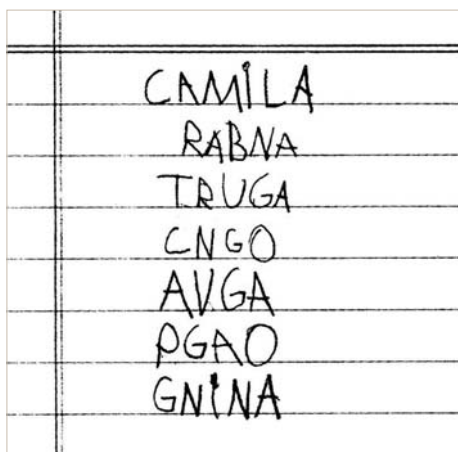 CAMILA
RABNA
TRUGA
CNGO
AVGA
PGAO
GNINA